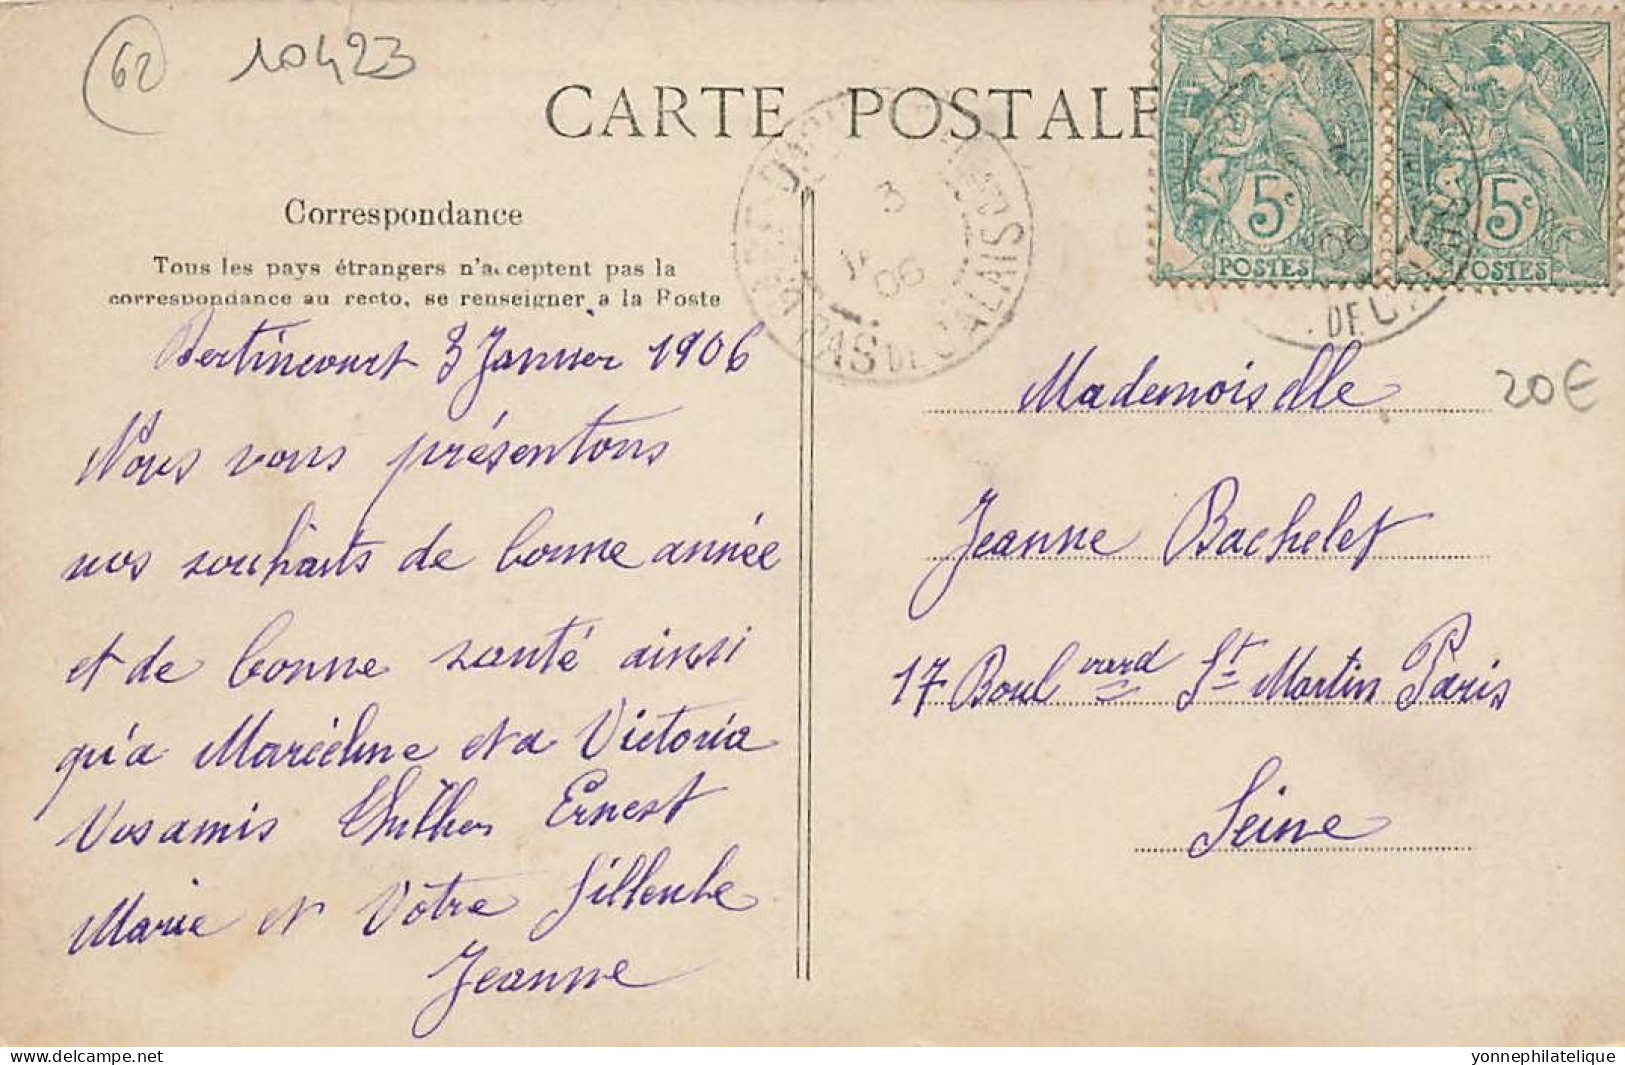 62
10423
CARTE POSTALE
Correspondance
Tous les pays étrangers n'acceptent pas la
correspondance au recto, se renseigner a la Poste
3
06
PAS DE CALAIS
5c 5c
POSTES POSTES
06
DE CALAIS
Bertincourt 3 Janvier 1906
Nous vous présentons
nos souhaits de bonne année
et de bonne santé ainsi
qu'a Marcéline et a Victoria
Vos amis Ernest
Marie et Votre filleule
Jeanne
Mademoiselle
20€
Jeanne Bachelet
17 Boulevard St Martin Paris
Seine
Delcampe.net
yonnephilatelique